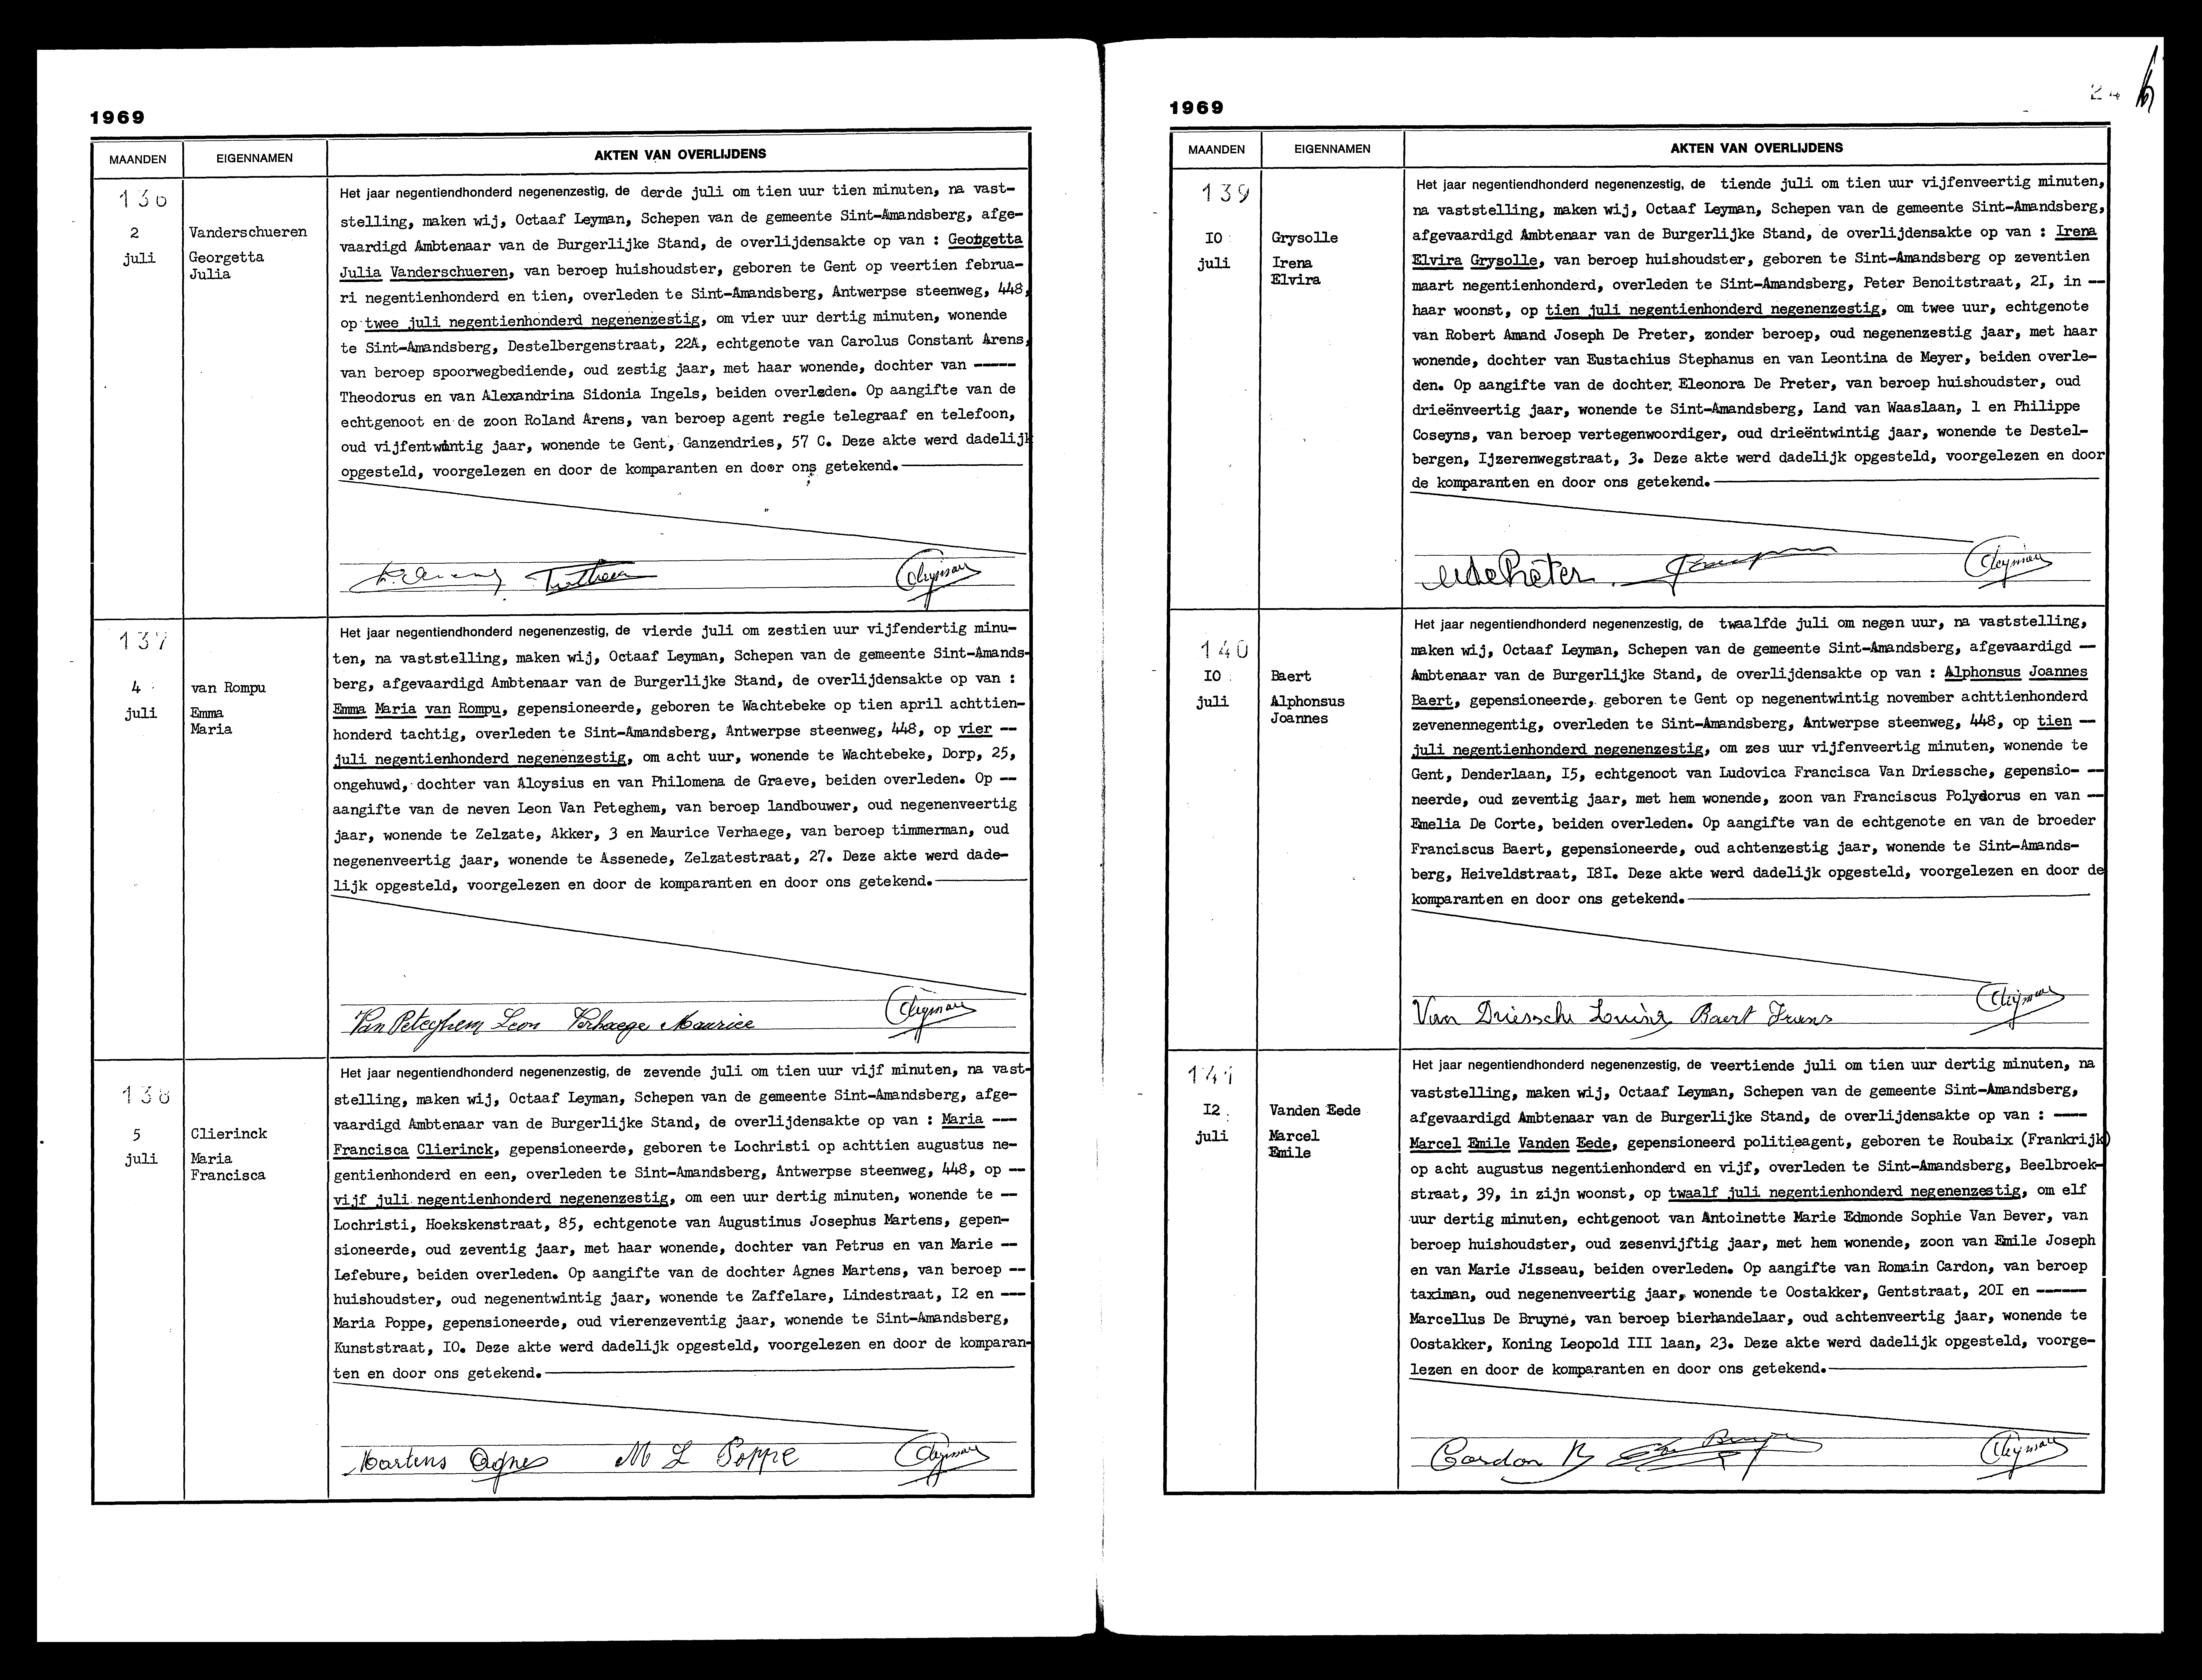 1969
MAANDEN
EIGENNAMEN
AKTEN VAN OVERLIJDENS
136
2
juli
Vanderschueren
Georgetta
Julia
Het jaar negentiendhonderd negenenzestig, de derde juli om tien uur tien minuten, na vast-
stelling, maken wij, Octaaf Leyman, Schepen van de gemeente Sint-Amandsberg, afge-
vaardigd Ambtenaar van de Burgerlijke Stand, de overlijdensakte op van : Georgetta
Julia Vanderschueren, van beroep huishoudster, geboren te Gent op veertien februa-
ri negentienhonderd en tien, overleden te Sint-Amandsberg, Antwerpse steenweg, 448,
op twee juli negentienhonderd negenenzestig, om vier uur dertig minuten, wonende
te Sint-Amandsberg, Destelbergenstraat, 22A, echtgenote van Carolus Constant Arens,
van beroep spoorwegbediende, oud zestig jaar, met haar wonende, dochter van -----
Theodorus en van Alexandrina Sidonia Ingels, beiden overleden. Op aangifte van de
echtgenoot en de zoon Roland Arens, van beroep agent regie telegraaf en telefoon,
oud vijfentwintig jaar, wonende te Gent, Ganzendries, 57 C. Deze akte werd dadelijk
opgesteld, voorgelezen en door de komparanten en door ons getekend.
CLeyman
137
4
juli
van Rompu
Emma
Maria
Het jaar negentiendhonderd negenenzestig, de vierde juli om zestien uur vijfendertig minu-
ten, na vaststelling, maken wij, Octaaf Leyman, Schepen van de gemeente Sint-Amands-
berg, afgevaardigd Ambtenaar van de Burgerlijke Stand, de overlijdensakte op van :
Emma Maria van Rompu, gepensioneerde, geboren te Wachtebeke op tien april achttien-
honderd tachtig, overleden te Sint-Amandsberg, Antwerpse steenweg, 448, op vier --
juli negentienhonderd negenenzestig, om acht uur, wonende te Wachtebeke, Dorp, 25,
ongehuwd, dochter van Aloysius en van Philomena de Graeve, beiden overleden. Op --
aangifte van de neven Leon Van Peteghem, van beroep landbouwer, oud negenenveertig
jaar, wonende te Zelzate, Akker, 3 en Maurice Verhaege, van beroep timmerman, oud
negenenveertig jaar, wonende te Assenede, Zelzatestraat, 27. Deze akte werd dade-
lijk opgesteld, voorgelezen en door de komparanten en door ons getekend.
Van Peteghem Leon Verhaege Maurice CLeyman
138
5
juli
Clierinck
Maria
Francisca
Het jaar negentiendhonderd negenenzestig, de zevende juli om tien uur vijf minuten, na vast-
stelling, maken wij, Octaaf Leyman, Schepen van de gemeente Sint-Amandsberg, afge-
vaardigd Ambtenaar van de Burgerlijke Stand, de overlijdensakte op van : Maria ---
Francisca Clierinck, gepensioneerde, geboren te Lochristi op achttien augustus ne-
gentienhonderd en een, overleden te Sint-Amandsberg, Antwerpse steenweg, 448, op --
vijf juli negentienhonderd negenenzestig, om een uur dertig minuten, wonende te --
Lochristi, Hoekskenstraat, 85, echtgenote van Augustinus Josephus Martens, gepen-
sioneerde, oud zeventig jaar, met haar wonende, dochter van Petrus en van Marie --
Lefebure, beiden overleden. Op aangifte van de dochter Agnes Martens, van beroep --
huishoudster, oud negenentwintig jaar, wonende te Zaffelare, Lindestraat, I2 en ---
Maria Poppe, gepensioneerde, oud vierenzeventig jaar, wonende te Sint-Amandsberg,
Kunststraat, IO. Deze akte werd dadelijk opgesteld, voorgelezen en door de komparan-
ten en door ons getekend.
Martens Agnes M L Poppe CLeyman
24
1969
MAANDEN
EIGENNAMEN
AKTEN VAN OVERLIJDENS
139
IO
juli
Grysolle
Irena
Elvira
Het jaar negentiendhonderd negenenzestig, de tiende juli om tien uur vijfenveertig minuten,
na vaststelling, maken wij, Octaaf Leyman, Schepen van de gemeente Sint-Amandsberg,
afgevaardigd Ambtenaar van de Burgerlijke Stand, de overlijdensakte op van : Irena
Elvira Grysolle, van beroep huishoudster, geboren te Sint-Amandsberg op zeventien
maart negentienhonderd, overleden te Sint-Amandsberg, Peter Benoitstraat, 2I, in --
haar woonst, op tien juli negentienhonderd negenenzestig, om twee uur, echtgenote
van Robert Amand Joseph De Preter, zonder beroep, oud negenenzestig jaar, met haar
wonende, dochter van Eustachius Stephanus en van Leontina de Meyer, beiden overle-
den. Op aangifte van de dochter Eleonora De Preter, van beroep huishoudster, oud
drieënveertig jaar, wonende te Sint-Amandsberg, Land van Waaslaan, 1 en Philippe
Coseyns, van beroep vertegenwoordiger, oud drieëntwintig jaar, wonende te Destel-
bergen, Ijzerenwegstraat, 3. Deze akte werd dadelijk opgesteld, voorgelezen en door
de komparanten en door ons getekend.
CLeyman
140
IO
juli
Baert
Alphonsus
Joannes
Het jaar negentiendhonderd negenenzestig, de twaalfde juli om negen uur, na vaststelling,
maken wij, Octaaf Leyman, Schepen van de gemeente Sint-Amandsberg, afgevaardigd --
Ambtenaar van de Burgerlijke Stand, de overlijdensakte op van : Alphonsus Joannes
Baert, gepensioneerde, geboren te Gent op negenentwintig november achttienhonderd
zevenennegentig, overleden te Sint-Amandsberg, Antwerpse steenweg, 448, op tien --
juli negentienhonderd negenenzestig, om zes uur vijfenveertig minuten, wonende te
Gent, Denderlaan, I5, echtgenoot van Ludovica Francisca Van Driessche, gepensio- --
neerde, oud zeventig jaar, met hem wonende, zoon van Franciscus Polydorus en van --
Emelia De Corte, beiden overleden. Op aangifte van de echtgenote en van de broeder
Franciscus Baert, gepensioneerde, oud achtenzestig jaar, wonende te Sint-Amands-
berg, Heiveldstraat, I8I. Deze akte werd dadelijk opgesteld, voorgelezen en door de
komparanten en door ons getekend.
Van Driessche Louisa Baert Frans CLeyman
141
I2
juli
Vanden Eede
Marcel
Emile
Het jaar negentiendhonderd negenenzestig, de veertiende juli om tien uur dertig minuten, na
vaststelling, maken wij, Octaaf Leyman, Schepen van de gemeente Sint-Amandsberg,
afgevaardigd Ambtenaar van de Burgerlijke Stand, de overlijdensakte op van : ----
Marcel Emile Vanden Eede, gepensioneerd politieagent, geboren te Roubaix (Frankrijk)
op acht augustus negentienhonderd en vijf, overleden te Sint-Amandsberg, Beelbroek-
straat, 39, in zijn woonst, op twaalf juli negentienhonderd negenenzestig, om elf
uur dertig minuten, echtgenoot van Antoinette Marie Edmonde Sophie Van Bever, van
beroep huishoudster, oud zesenvijftig jaar, met hem wonende, zoon van Emile Joseph
en van Marie Jisseau, beiden overleden. Op aangifte van Romain Cardon, van beroep
taximan, oud negenenveertig jaar, wonende te Oostakker, Gentstraat, 20I en ------
Marcellus De Bruyne, van beroep bierhandelaar, oud achtenveertig jaar, wonende te
Oostakker, Koning Leopold III laan, 23. Deze akte werd dadelijk opgesteld, voorge-
lezen en door de komparanten en door ons getekend.
Cardon R CLeyman